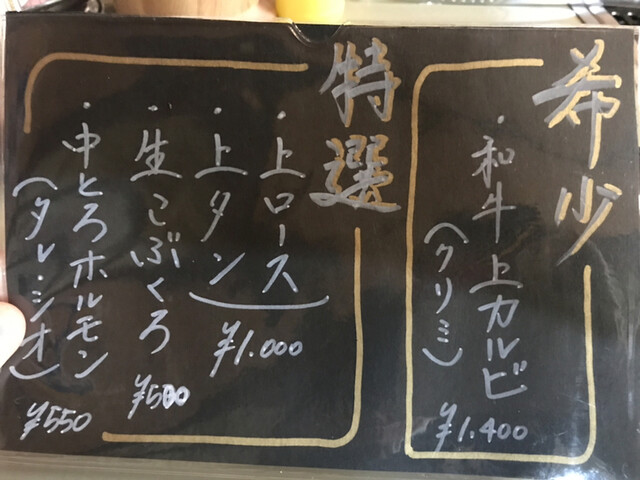 希少
・和牛上カルビ
(クリミ)
¥1.400
特選
・上ロース
・上タン
¥1.000
・生こぶくろ
¥500
・中とろホルモン
(タレ・シオ)
¥550